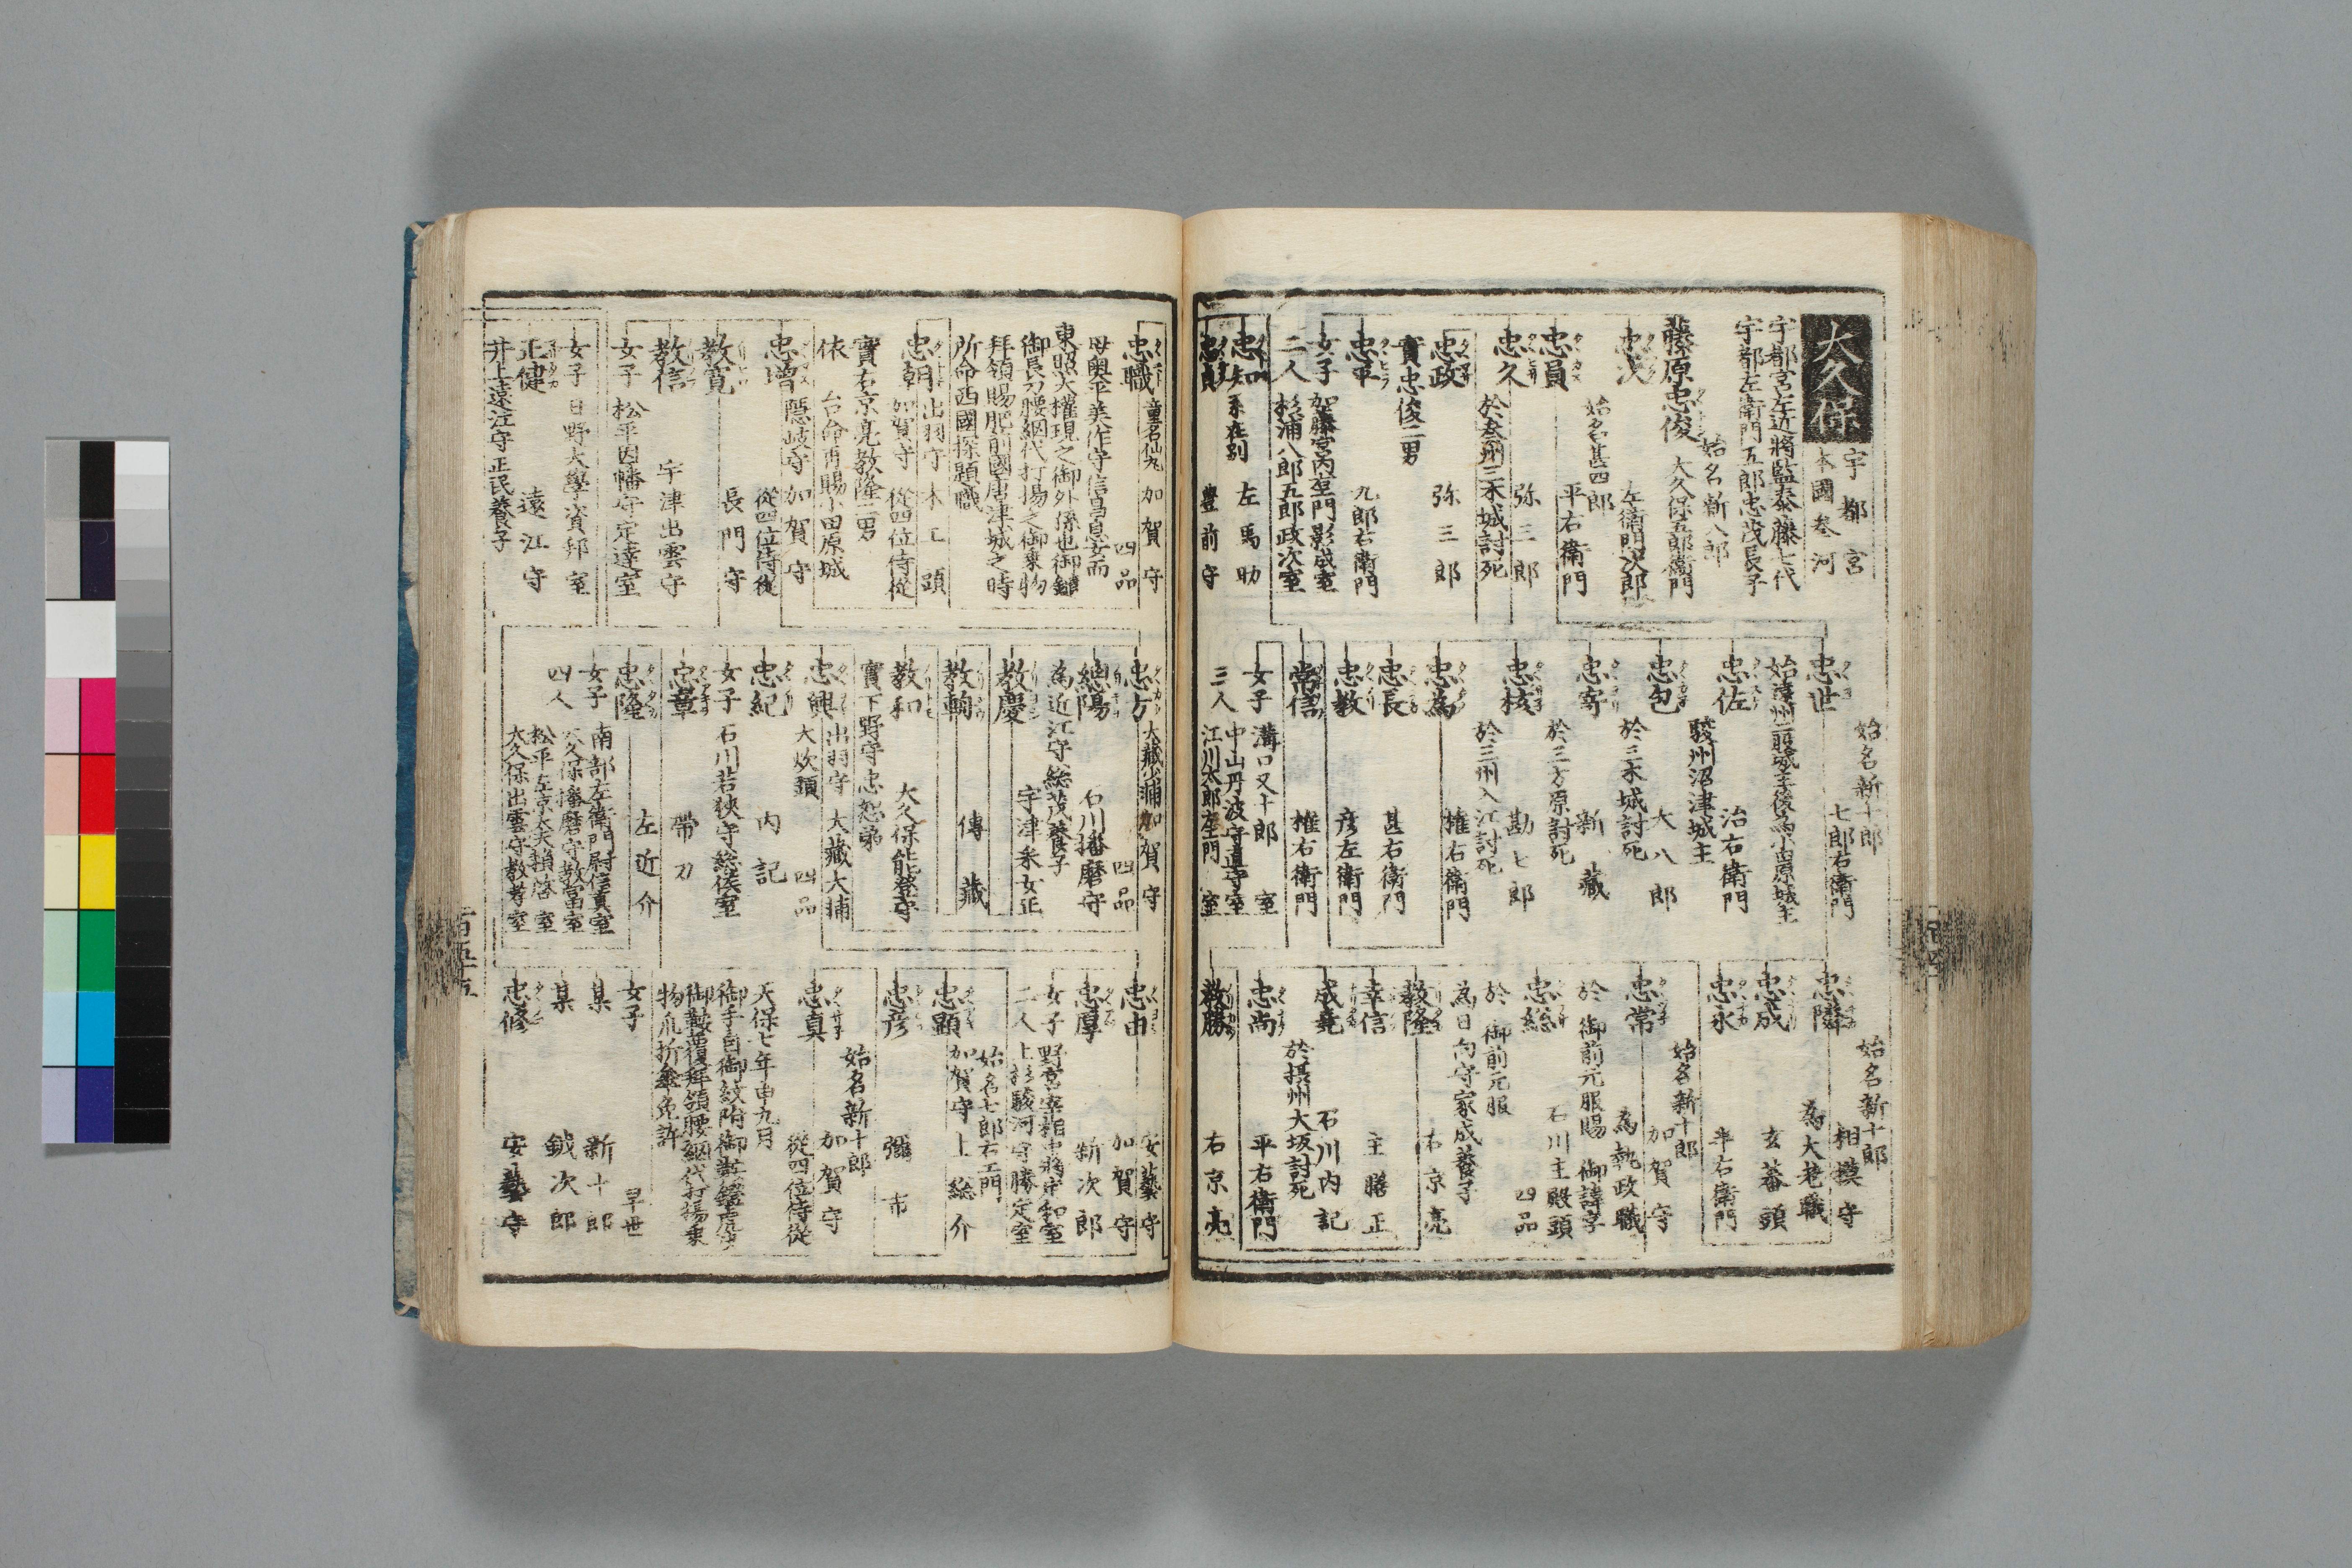 大久保
宇都宮
本國參河
宇都宮左近將監泰藤七代
宇都左衛門五郎忠茂長子
始名新八郎
藤原忠俊 大久保五郎衛門
忠次 左衛門次郎
始名甚四郎
忠員 平右衛門
忠久 弥三郎
於参州三木城討死
忠政 弥三郎
實忠俊二男
忠平 九郎右衛門
女子 加藤宮内左門影成室
二人 杉浦八郎五郎政次室
忠知 系在別 左馬助
忠貞 豊前守
始名新十郎
忠世 七郎右衛門
始遠州二股城主後為小田原城主
忠佐 治右衛門
駿州沼津城主
忠包 大八郎
於三木城討死
忠寄 新藏
於三方原討死
忠核 勘七郎
於三州入江討死
忠為 権右衛門
忠長 甚右衛門
忠教 彦左衛門
常信 権右衛門
女子 溝口又十郎室
三人 中山丹波守直守室
江川太郎左門室
始名新十郎
忠隣 相摸守
為大老職
忠成 玄蕃頭
忠永 半右衛門
始名新十郎
忠常 加賀守
為執政職
於 御前元服賜 御諱字
忠総 石川主殿頭
四品
於 御前元服
為日向守家成養子
教隆 右京亮
幸信 主膳正
成堯 石川内記
於摂州大坂討死
忠尚 平右衛門
教勝 右京亮
忠職 童名仙丸 加賀守
四品
母奥平美作守信昌息女而
東照大権現之御外孫也御鑓
御長刀腰網代打揚之御乗物
拜領賜肥前國唐津城之時
所命西國探題職
出羽守 木工頭
忠朝 加賀守 從四位侍從
實右京亮教隆二男
依 台命再賜小田原城
忠増 隠岐守 加賀守
從四位侍從
教寛 長門守
教信 宇津出雲守
女子 松平因幡守定達室
女子 日野大學資邦室
正健 遠江守
井上遠江守正民養子
忠方 大藏少輔 加賀守
四品
總陽 石川播磨守
為近江守総茂養子
教慶 宇津釆女正
教駒 傳藏
教和 大久保能登守
實下野守忠恕弟
忠興 出羽守 大藏大輔
大炊頭 四品
忠紀 内記
女子 石川若狭守総候室
忠章 帶刀
忠隆 左近介
女子 南部左衛門尉信眞室
四人 大久保播磨守教富室
松平左京大夫頼啓室
大久保出雲守教孝室
忠由 安藝守
加賀守
忠厚 新次郎
女子 野宮宰相中将定和室
二人 上杉駿河守勝定室
始名七郎右エ門
忠顯 加賀守 上総介
忠彦 彌市
始名新十郎
忠真 加賀守
從四位侍從
天保七年申九月
物爪折傘免許
女子 早世
某 新十郎
某 鉞次郎
忠修 安藝守
百五十五